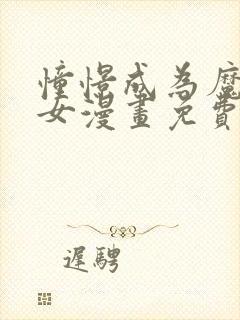 憧憬成為魔
女漫畫免費
遲騁